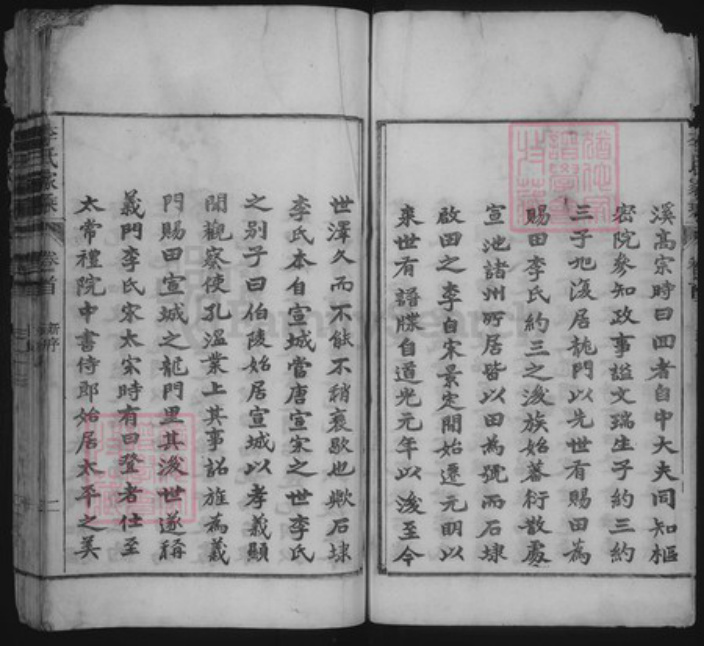 溪高宗時曰四者自中大夫同知樞
密院參知政事謚文瑞生子約三約
三子旭復居龍門以先世有賜田為
賜田李氏約三之後族始蕃衍散處
宣池諸州所居皆以田為號而石埭
啟田之李自宋景定開始遷元明以
來世有譜牒自道光元年以後至今
世澤久而不能不稍衰歇也歟石埭
李氏本自宣城當唐宣宗之世李氏
之別子曰伯陵始居宣城以孝義顯
聞觀察使孔溫業上其事詔旌為義
門賜田宣城之龍門里其後世遂稱
義門李氏宋太宗時有曰登者仕至
太常禮院中書侍郎始居太平之美
李氏家乘 卷首 新序 二